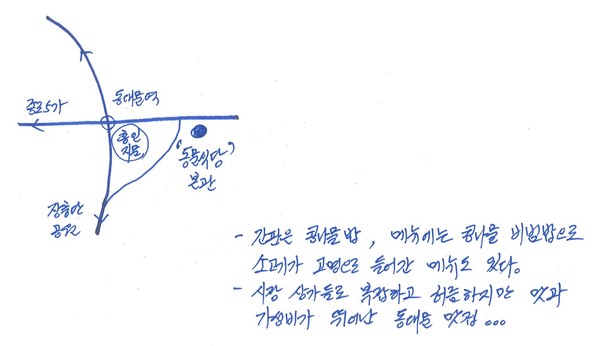 종로5가
동대문역
흥인
지문
'동문식당'
본관
장충단
공원
- 간판은 콩나물밥, 메뉴에는 콩나물 비빔밥으로
소고기가 고명으로 들어간 메뉴도 있다.
- 시장 상가들로 복잡하고 허름하지만 맛과
가성비가 뛰어난 동대문 맛집...